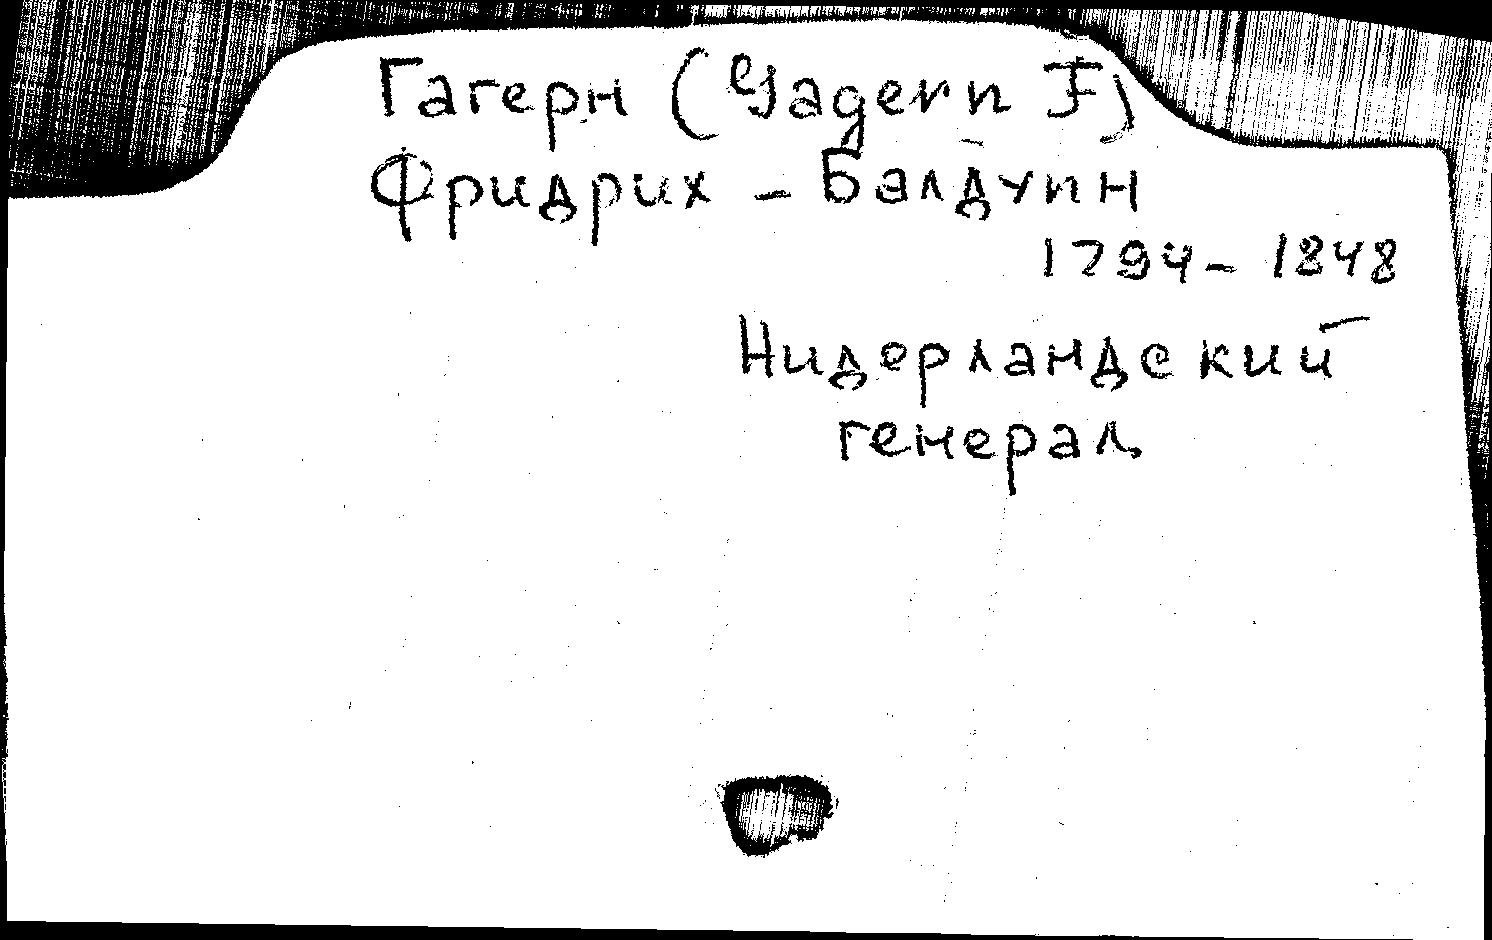 Гагерн (Gagern F)
Фридрих - Балдуин
1794 - 1848
Нидерландский
генерал